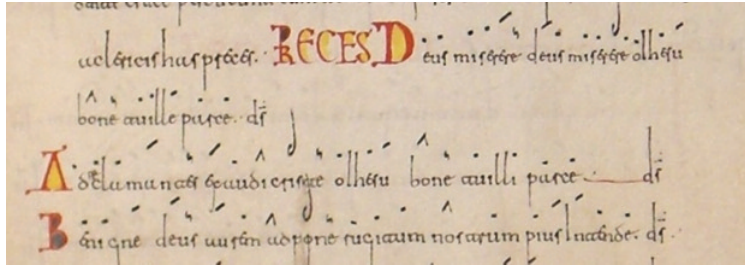 a clericis has preces. PRECES Deus miserere deus miserere o Ihesu
bone tu illi parce. ds
Ad te clamantes exaudi criste o Ihesu bone tu illi parce ds
Benigne deus aurem adpone rugitum nostrum pius Intende. ds